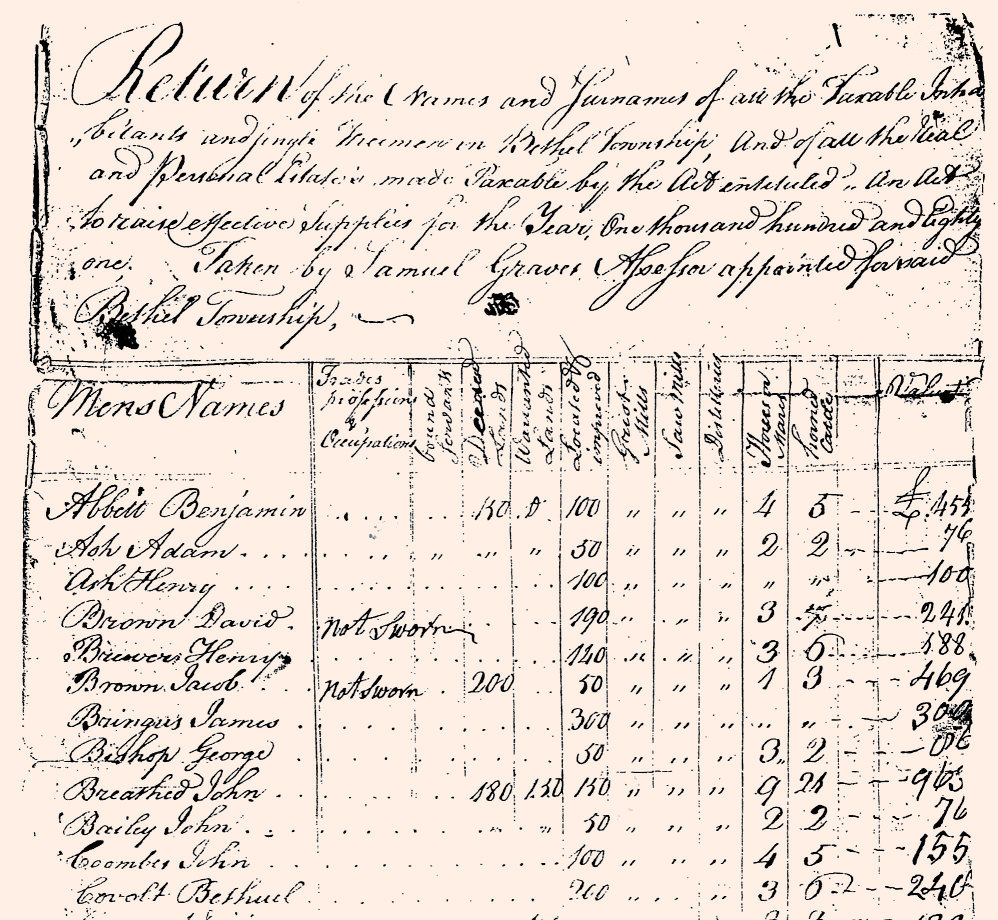 Return of the Names and Surnames of all the Taxable Inha
„bitants and single Freemen in Bethel Township, And of all the Real
and Personal Estates made Taxable by the Act entituled „ An Act
to raise effective Supplies for the Year, One thousand hundred and Eighty
one. Taken by Samuel Graves Assessor appointed for said
Bethel Township,
Mens Names Trades professions & Occupations bound Servants Deeded Lands Warranted Lands Located & improved Grist Mills Saw Mills Distilleries Horses & Mares horned Cattle Value
Abbitt Benjamin 150 100 „ „ „ 4 5 £
Ash Adam „ „ „ 50 „ „ „ 2 2 76
Ash Henry 100 „ „ „ „ „ 100
Brown David not Sworn 190 „ „ „ 3
Brewer Henry 140 „ „ „ 3 6 188
Brown Jacob not Sworn 200 50 „ „ „ 1 3 469
Bringus James 300 „ „ „ „ „
Bishop George 50 „ „ „ 3 2
Breathed John 180 150 150 „ „ „ 9 963
Bailey John „ „ 50 „ „ „ 2 2 76
Coombes John 100 „ „ „ 4 5 155
Covolt Bethuel 200 „ „ „ 3 6 240